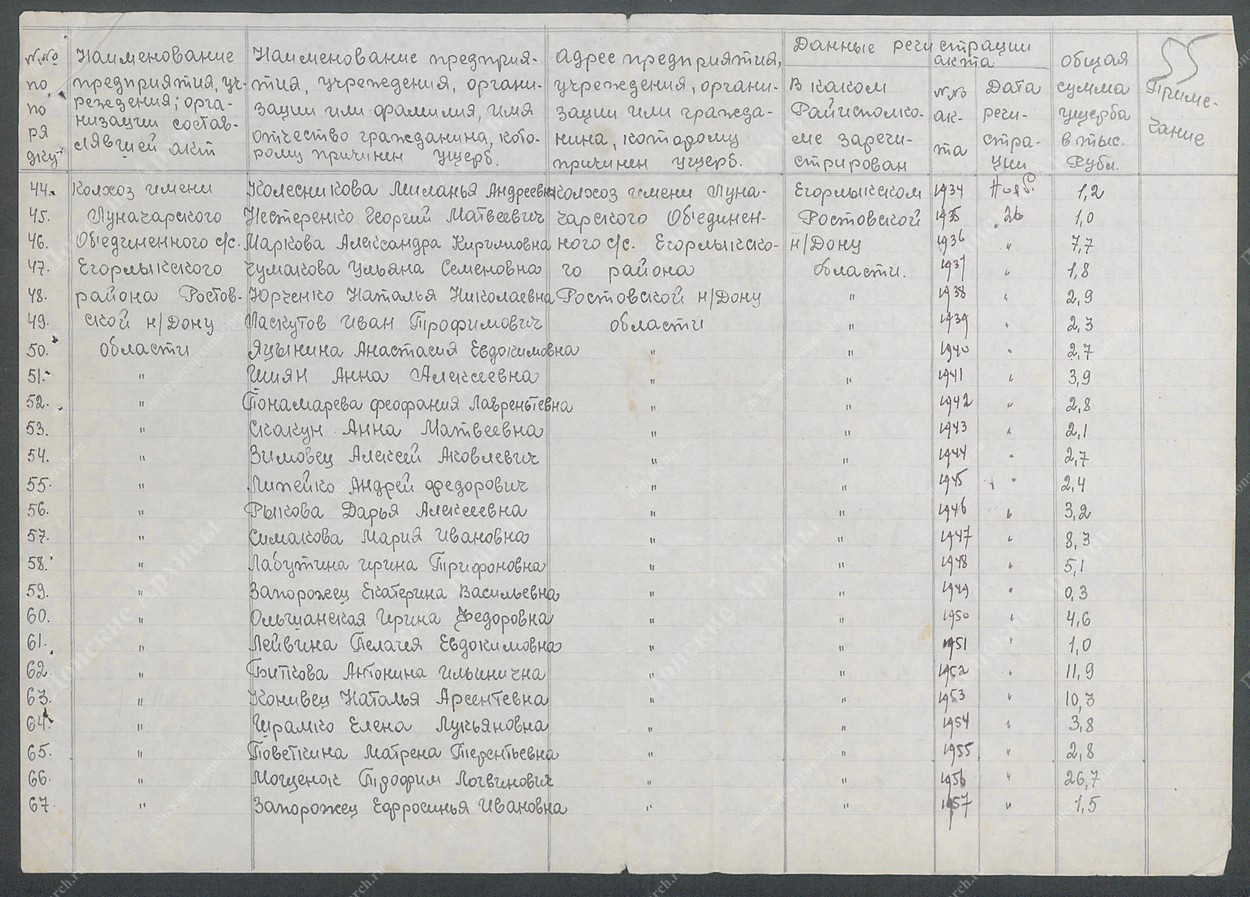 55
№№ по по рядку
Наименование предприятия, учреждения, организации составлявшей акт
Наименование предприятия, учреждения, организации или фамилия, имя отчество гражданина, которому причинен ущерб.
Адрес предприятия, учреждения, организации или гражданина, которому причинен ущерб.
Данные регистрации акта
В каком Райисполкоме зарегистрирован
№№ акта
Дата регистрации
Общая сумма ущерба в тыс. Рубл.
Примечание
44. Колхоз имени Колесникова Миланья Андреевна Колхоз имени Луна- Егорлыкском 1934 Нояб. 1,2
45. Луначарского Нестеренко Георгий Матвеевич чарского Объединен- Ростовской 1935 26 1,0
46. Объединенного с/с. Маркова Александра Кирилловна ного с/с. Егорлыкско- н/Дону 1936 " 7,7
47. Егорлыкского Чумакова Ульяна Семеновна го района области. 1937 " 1,8
48. района Ростов- Юрченко Наталья Николаевна Ростовской н/Дону " 1938 " 2,9
49. ской н/Дону Ласкутов Иван Трофимович области " 1939 " 2,3
50. области Яцынина Анастасия Евдокимовна " " 1940 " 2,7
51. " Шиян Анна Алексеевна " " 1941 " 3,9
52. " Понамарева Феофания Лавреньтевна " " 1942 " 2,8
53. " Скакун Анна Матвеевна " " 1943 " 2,1
54. " Зимовец Алексей Яковлевич " " 1944 " 2,7
55. " Линейко Андрей Федорович " " 1945 " 2,4
56. " Рыкова Дарья Алексеевна " " 1946 " 3,2
57. " Симакова Мария Ивановна " " 1947 " 8,3
58. " Лабутина Ирина Трифоновна " " 1948 " 5,1
59. " Запорожец Екатерина Васильевна " " 1949 " 0,3
60. " Ольшанская Ирина Федоровна " " 1950 " 4,6
61. " Лейвина Пелагея Евдокимовна " " 1951 " 1,0
62. " Биткова Антонина Ильинична " " 1952 " 11,9
63. " Конивец Наталья Арсентевна " " 1953 " 10,3
64. " Шрамко Елена Лукьяновна " " 1954 " 3,8
65. " Поветкина Матрена Терентьевна " " 1955 " 2,8
66. " Мощенок Трофим Логвинович " " 1956 " 26,7
67. " Запорожец Ефросинья Ивановна " " 1957 " 1,5